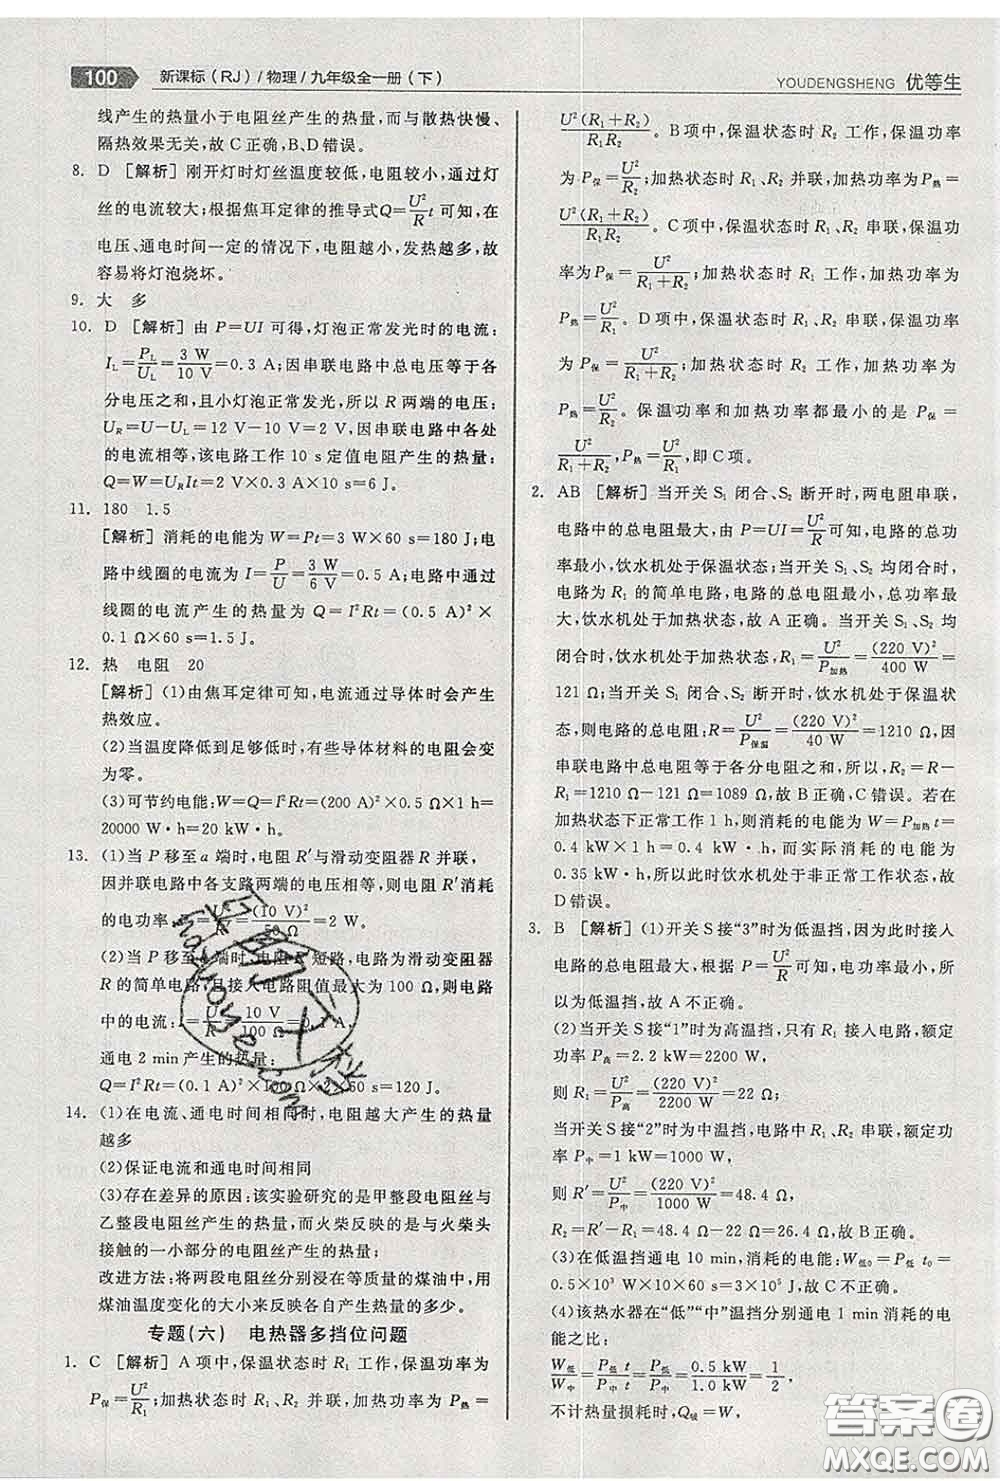 100 新课标(RJ)/物理/九年级全一册(下)
YOUDENGSHENG 优等生
线产生的热量小于电阻丝产生的热量,而与散热快慢、
隔热效果无关,故C正确,B、D错误。
8. D [解析] 刚开灯时灯丝温度较低,电阻较小,通过灯
丝的电流较大;根据焦耳定律的推导式Q=U²/R t可知,在
电压、通电时间一定的情况下,电阻越小,发热越多,故
容易将灯泡烧坏。
9. 大 多
10. D [解析] 由P=UI可得,灯泡正常发光时的电流:
I_L=P_L/U_L=3 W/10 V=0.3 A;因串联电路中总电压等于各
分电压之和,且小灯泡正常发光,所以R两端的电压:
U_R=U-U_L=12 V-10 V=2 V;因串联电路中各处
的电流相等,该电路工作10 s定值电阻产生的热量:
Q=W=U_RIt=2 V×0.3 A×10 s=6 J。
11. 180 1.5
[解析] 消耗的电能为W=Pt=3 W×60 s=180 J;电
路中线圈的电流为I=P/U=3 W/6 V=0.5 A;电流通过
线圈的电流产生的热量为Q=I²Rt=(0.5 A)²×
0.1 Ω×60 s=1.5 J。
12. 热 电阻 20
[解析] (1)由焦耳定律可知,电流通过导体时会产生
热效应。
(2)当温度降低到足够低时,有些导体材料的电阻会变
为零。
(3)可节约电能:W=Q=I²Rt=(200 A)²×0.5 Ω×1 h=
20000 W·h=20 kW·h。
13. (1)当P移至a端时,电阻R′与滑动变阻器R并联,
因并联电路中各支路两端的电压相等,则电阻R′消耗
的电功率=U²/=(10 V)²/50 Ω=2 W。
(2)当P移至端时,电阻短路,电路为滑动变阻器
R的简单电路,且接入电路阻值最大为100 Ω,则电路
中的电流:I=U/R=10 V/100 Ω=0.1 A,
通电2 min产生的热量:
Q=I²Rt=(0.1 A)²×100 Ω×2×60 s=120 J。
14. (1)在电流、通电时间相同时,电阻越大产生的热量
越多
(2)保证电流和通电时间相同
(3)存在差异的原因:该实验研究的是甲整段电阻丝与
乙整段电阻丝产生的热量,而火柴反映的是与火柴头
接触的一小部分的电阻丝产生的热量;
改进方法:将两段电阻丝分别浸在等质量的煤油中,用
煤油温度变化的大小来反映各自产生热量的多少。
专题(六) 电热器多挡位问题
1. C [解析] A项中,保温状态时R₁工作,保温功率为
P保=U²/R₁;加热状态时R₁、R₂并联,加热功率为P热=
U²(R₁+R₂)/R₁R₂。B项中,保温状态时R₂工作,保温功率
为P保=U²/R₂;加热状态时R₁、R₂并联,加热功率为P热=
U²(R₁+R₂)/R₁R₂。C项中,保温状态时R₁、R₂串联,保温功
率为P保=U²/R₁+R₂;加热状态时R₁工作,加热功率为
P热=U²/R₁。D项中,保温状态时R₁、R₂串联,保温功率
为P保=U²/R₁+R₂;加热状态时R₂工作,加热功率为
P热=U²/R₂。保温功率和加热功率都最小的是P保=
U²/R₁+R₂,P热=U²/R₁,即C项。
2. AB [解析] 当开关S₁闭合、S₂断开时,两电阻串联,
电路中的总电阻最大,由P=UI=U²/R可知,电路的总功
率最小,饮水机处于保温状态;当开关S₁、S₂均闭合时,
电路为R₁的简单电路,电路的总电阻最小,总功率最
大,饮水机处于加热状态,故A正确。当开关S₁、S₂均
闭合时,饮水机处于加热状态,R₁=U²/P加热=(220 V)²/400 W=
121 Ω;当开关S₁闭合、S₂断开时,饮水机处于保温状
态,则电路的总电阻:R=U²/P保温=(220 V)²/40 W=1210 Ω,因
串联电路中总电阻等于各分电阻之和,所以,R₂=R-
R₁=1210 Ω-121 Ω=1089 Ω,故B正确,C错误。若在
加热状态下正常工作1 h,则消耗的电能为W=P加热t=
0.4 kW×1 h=0.4 kW·h,而实际消耗的电能为
0.35 kW·h,所以此时饮水机处于非正常工作状态,故
D错误。
3. B [解析] (1)开关S接“3”时为低温挡,因为此时接入
电路的总电阻最大,根据P=U²/R可知,总功率最小,所
以为低温挡,故A不正确。
(2)当开关S接“1”时为高温挡,只有R₁接入电路,额定
功率P高=2.2 kW=2200 W,
则R₁=U²/P高=(220 V)²/2200 W=22 Ω,
当开关S接“2”时为中温挡,电路中R₁、R₂串联,额定
功率P中=1 kW=1000 W,
则R′=U²/P中=(220 V)²/1000 W=48.4 Ω,
R₂=R′-R₁=48.4 Ω-22 Ω=26.4 Ω,故B正确。
(3)在低温挡通电10 min,消耗的电能:W低₀=P低t₀=
0.5×10³ W×10×60 s=3×10⁵ J,故C不正确。
(4)该热水器在“低”“中”温挡分别通电1 min消耗的电
能之比:
W低/W中=P低t/P中t=P低/P中=0.5 kW/1.0 kW=1/2,
不计热量损耗时,Q吸=W,
答案圈
MXQE.COM